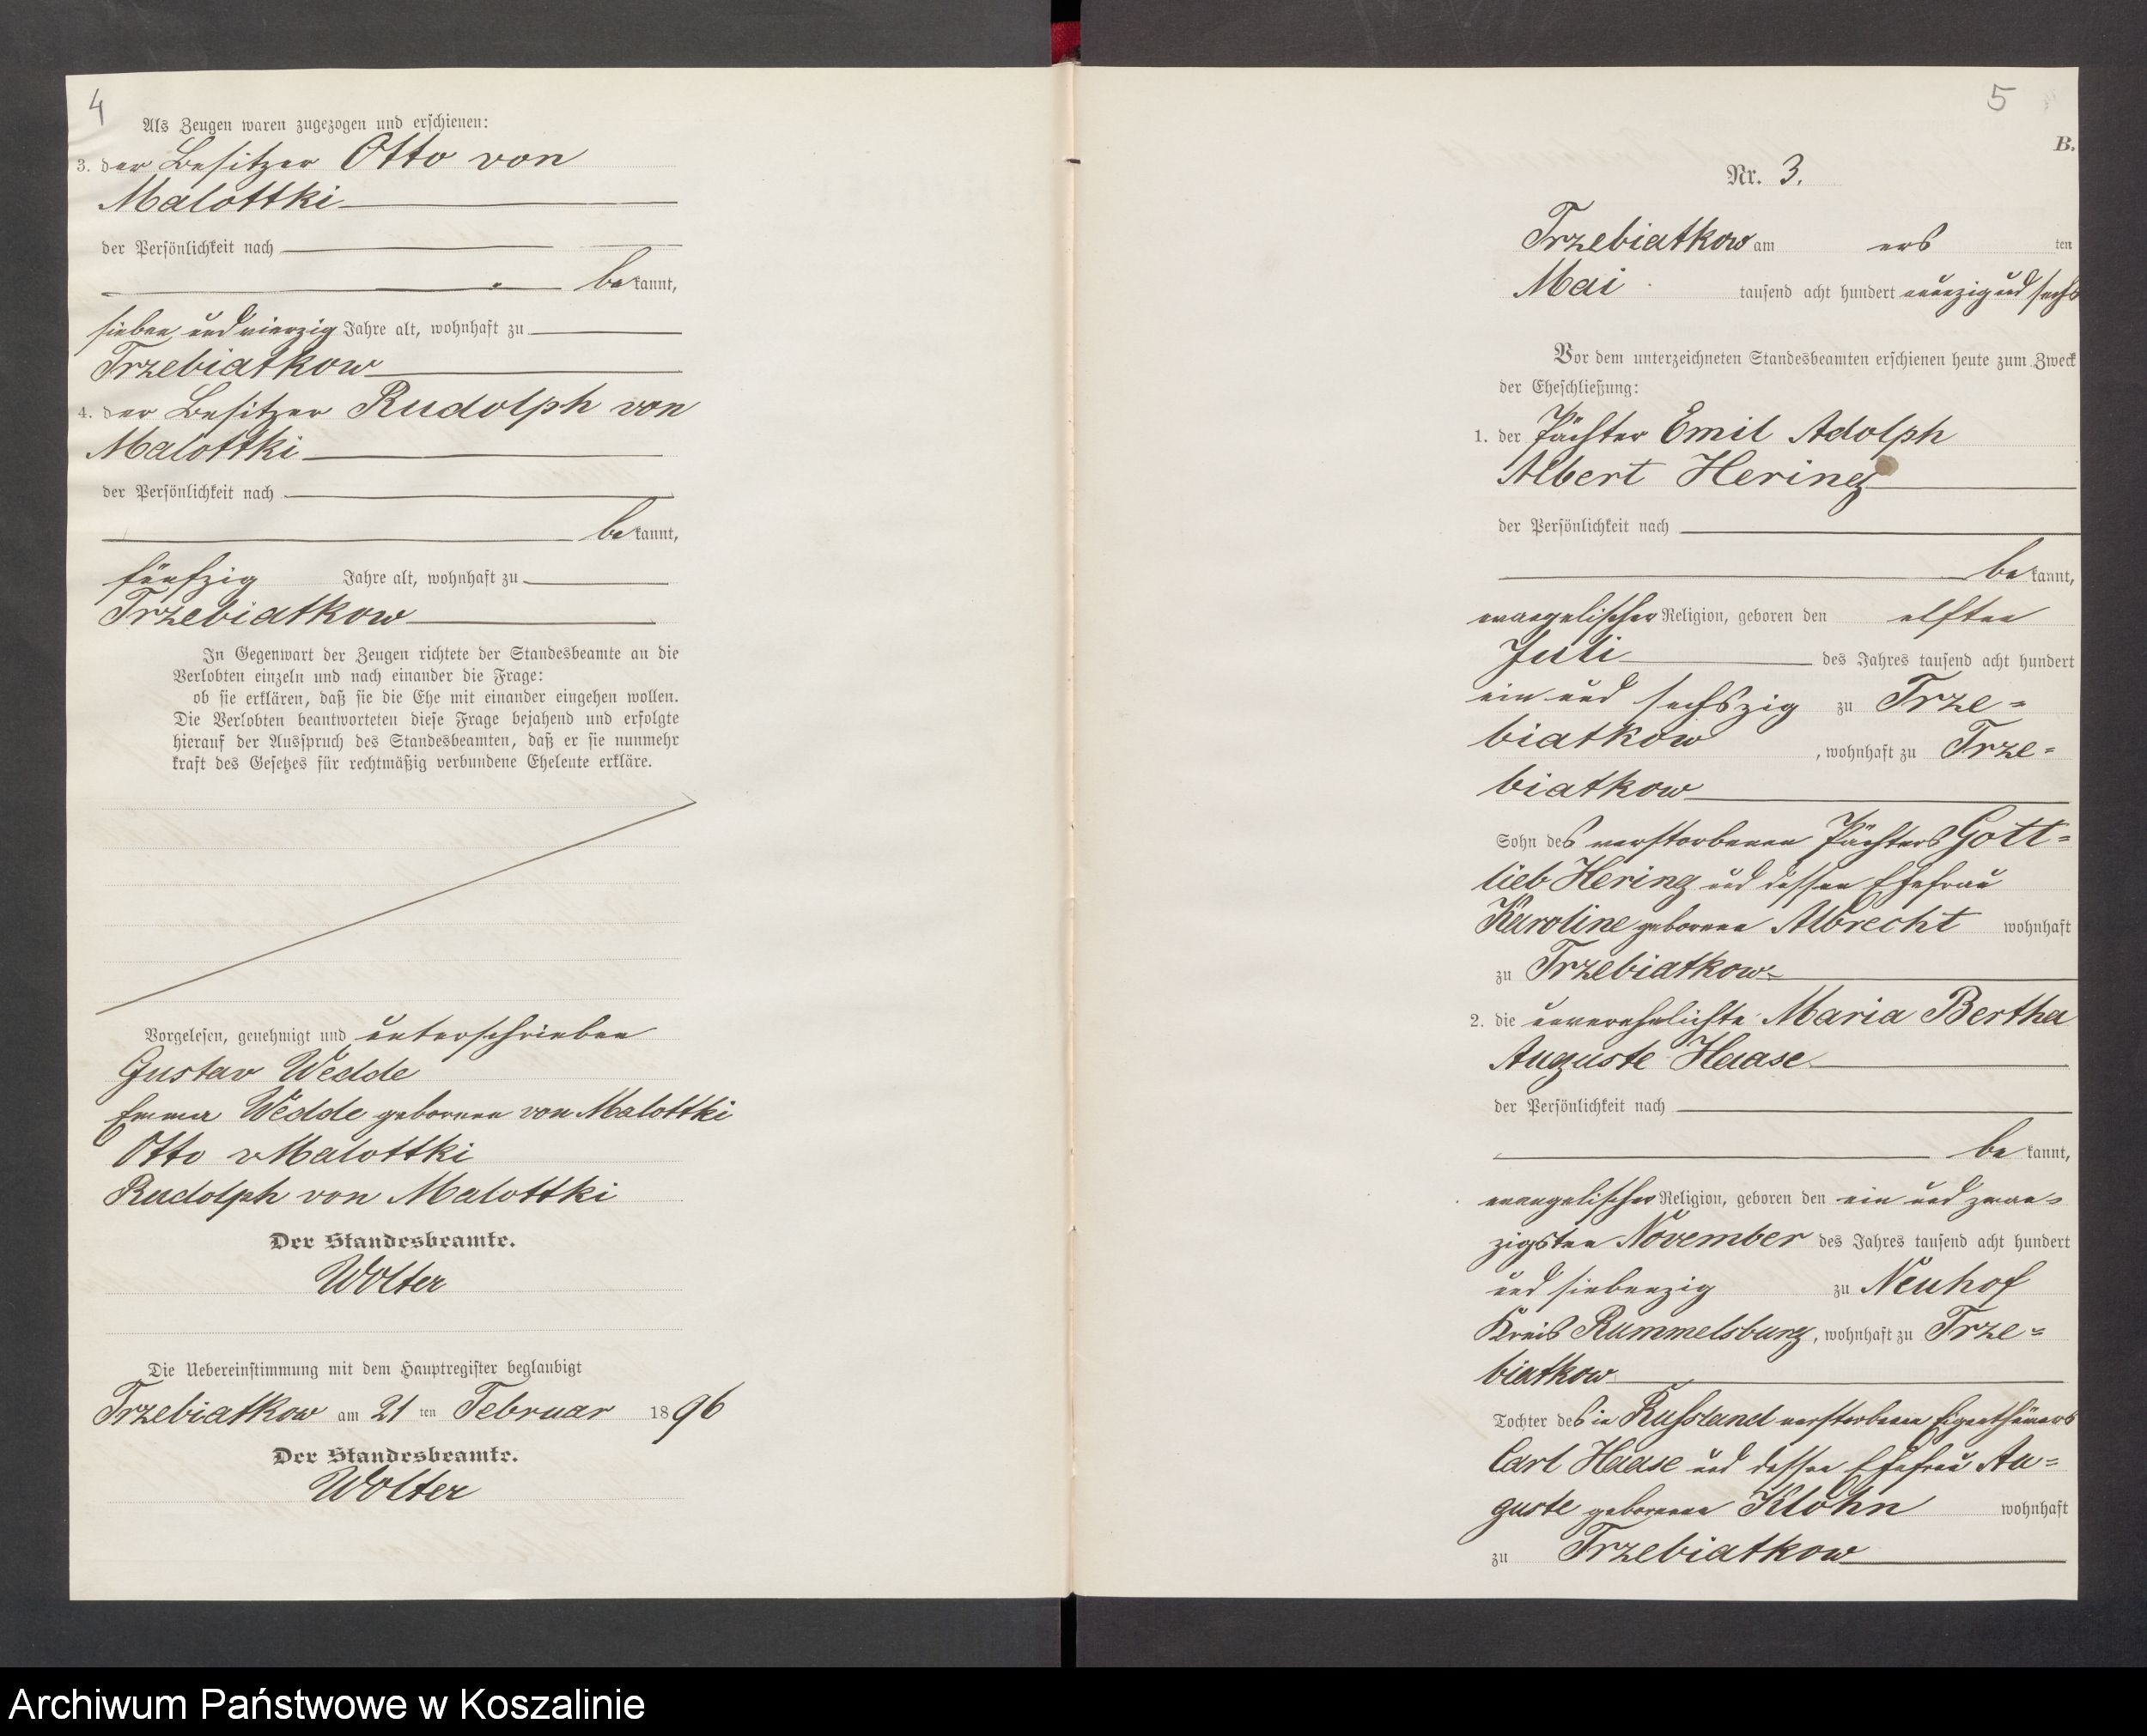 4
Als Zeugen waren zugezogen und erschienen:
3. der Besitzer Otto von
Malottki
der Persönlichkeit nach
bekannt,
sieben und vierzig Jahre alt, wohnhaft zu
Trzebiatkow
4. der Besitzer Rudolph von
Malottki
der Persönlichkeit nach
bekannt,
fünfzig Jahre alt, wohnhaft zu
Trzebiatkow
In Gegenwart der Zeugen richtete der Standesbeamte an die
Verlobten einzeln und nach einander die Frage:
ob sie erklären, daß sie die Ehe mit einander eingehen wollen.
Die Verlobten beantworteten diese Frage bejahend und erfolgte
hierauf der Ausspruch des Standesbeamten, daß er sie nunmehr
kraft des Gesetzes für rechtmäßig verbundene Eheleute erkläre.
Vorgelesen, genehmigt und unterschrieben
Gustav Wedde
Emma Wedde geborene von Malottki
Otto v Malottki
Rudolph von Malottki
Der Standesbeamte.
Wolter
Die Uebereinstimmung mit dem Hauptregister beglaubigt
Trzebiatkow am 21 ten Februar 1896
Der Standesbeamte.
Wolter
5
B.
Nr. 3.
Trzebiatkow am ers ten
Mai tausend acht hundert neunzig und sechs
Vor dem unterzeichneten Standesbeamten erschienen heute zum Zweck
der Eheschließung:
1. der Pächter Emil Adolph
Albert Hering
der Persönlichkeit nach
bekannt,
evangelischer Religion, geboren den elften
Juli des Jahres tausend acht hundert
ein und sechszig zu Trze=
biatkow, wohnhaft zu Trze=
biatkow
Sohn des verstorbenen Pächters Gott=
lieb Hering und dessen Ehefrau
Karoline geborene Albrecht wohnhaft
zu Trzebiatkow
2. die unverehelichte Maria Bertha
Auguste Haase
der Persönlichkeit nach
bekannt,
evangelischer Religion, geboren den ein und zwan=
zigsten November des Jahres tausend acht hundert
und siebenzig zu Neuhof
Kreis Rummelsburg, wohnhaft zu Trze=
biatkow
Tochter des in Russland verstorbenen Eigenthümers
Carl Haase und dessen Ehefrau Au=
guste geborene Klohn wohnhaft
zu Trzebiatkow
Archiwum Państwowe w Koszalinie